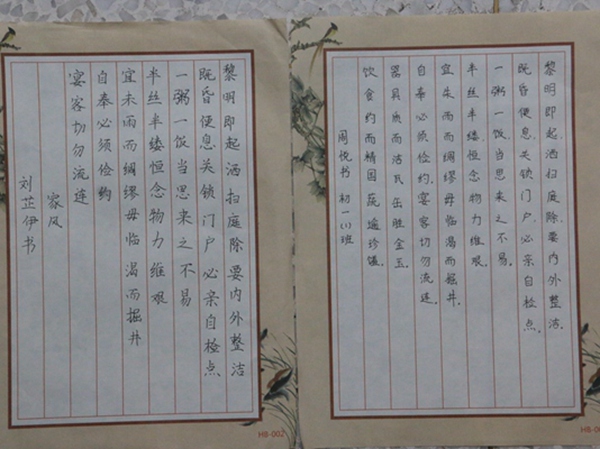 黎明即起洒扫庭除要内外整洁
既昏便息关锁门户必亲自检点
一粥一饭当思来之不易
半丝半缕恒念物力维艰
宜未雨而绸缪毋临渴而掘井
自奉必须俭约
宴客切勿流连
家风
刘芷伊书
HB-002
黎明即起洒扫庭除.要内外整洁.
既昏便息.关锁门户.必亲自检点.
一粥一饭.当思来之不易.
半丝半缕.恒念物力维艰.
宜未雨而绸缪.毋临渴而掘井.
自奉必须俭约.宴客切勿流连.
器具质而洁.瓦缶胜金玉.
饮食约而精.园蔬逾珍馐.
周悦书 初一(1)班